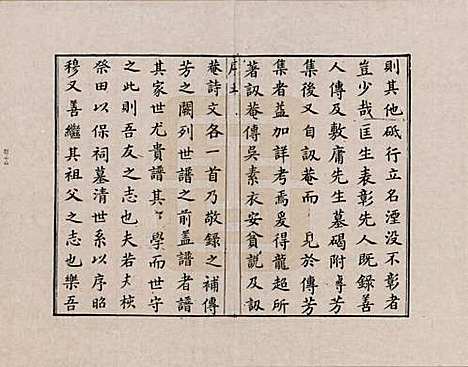 則其他砥行立名湮没不彰者
豈少哉匡生表彰先人既録善
人傳及敷庸先生墓碣附專芳
集後又自訒菴而見於傳芳
集者益加詳考焉爰得龍超所
著訒菴傳吳素衣安貧説及訒
菴詩文各一首乃敬録之補傳
芳之闕列世譜之前蓋譜者譜
其家世尤貴譜其學而世守
之此則吾友之志也夫若夫核
祭田以保祠墓清世系以序昭
穆又善繼其祖父之志也樂吾